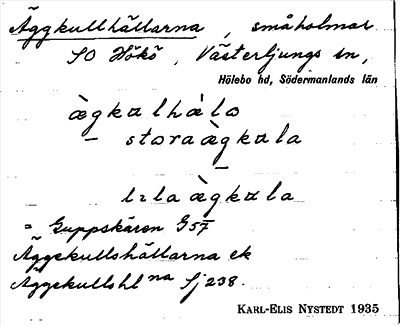 Äggkullhällarna, småholmar
SO Hökö, Västerljungs sn,
Hölebo hd, Södermanlands län
ὰgkɑlhὰlɑ
– stoɹaὰgkɑla
–
lɪlaὰgkɑla
= Guppskären G57
Äggekullshällarna ek
Äggekullshl na Sj 238.
KARL-ELIS NYSTEDT 1935